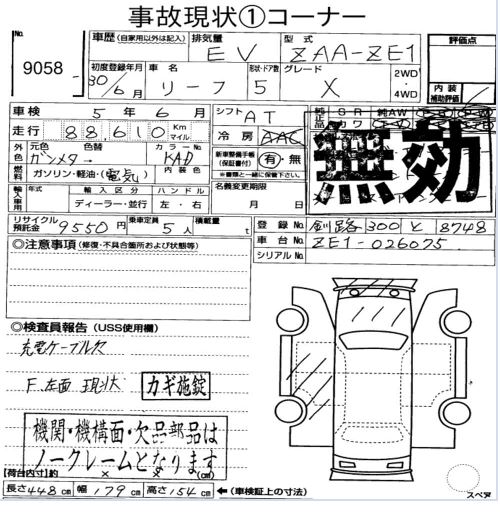 事故現状①コーナー
No.
9058
車歴 (自家用以外は記入) 排気量 型式
EV ZAA-ZE1
評価点
初度登録年月 車名 形状・ドア数 グレード
30/6月 リーフ 5 X
2WD
4WD
内装
補助評価
車検 5年6月
シフト AT
走行 88,610 Km マイル
冷房 AAC
純正品 SR 純AW
無効
外色 元色 色替 カラーNo.
ガンメタ KAD
燃料 ガソリン・軽油・(電気) 内装色
新車整備手帳 (保証書付) 有・無
※書類と一緒に保管下さい。
輸入車用 年式 輸入区分 ハンドル
ディーラー・並行 左・右
名義変更期限
月 日
リサイクル預託金 9550円 乗車定員 5人 積載量 t
登録No. 釧路 300 と 8748
車台No. ZE1-026075
シリアルNo.
◎注意事項 (修復・不具合箇所および状態等)
◎検査員報告 (USS使用欄)
充電ケーブル欠
F左面 現状
カギ施錠
機関・機構面・欠品部品は
ノークレームとなります
【荷台内寸】約 × × (cm)
長さ448cm 幅179cm 高さ154cm ←(車検証上の寸法)
スペア